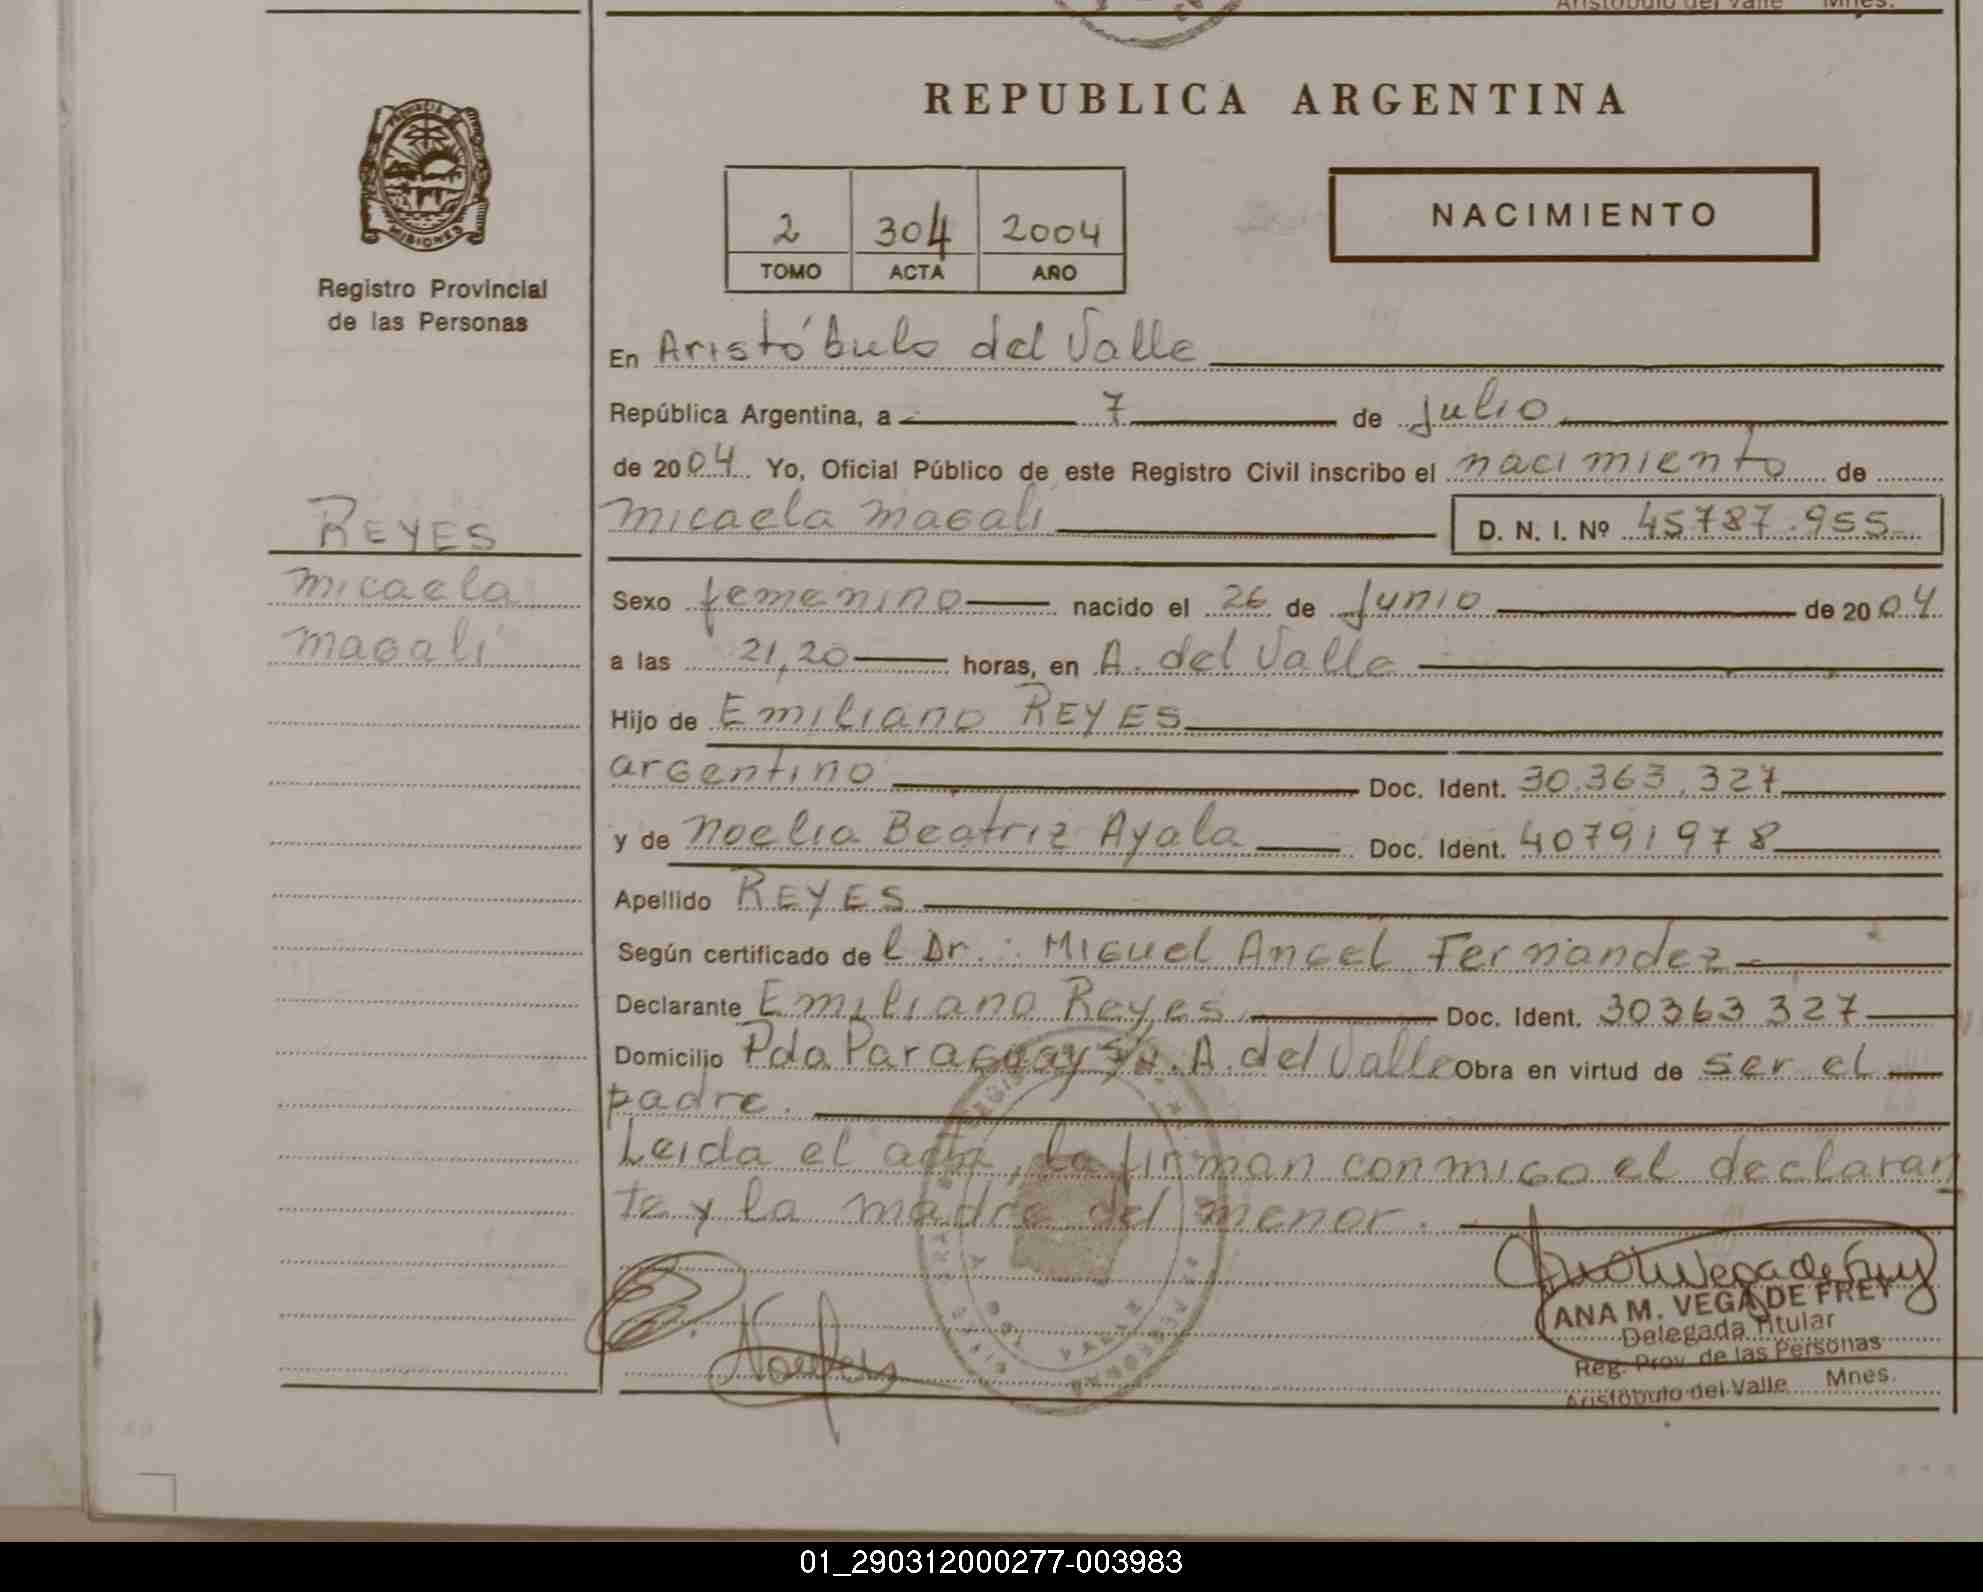 Aristóbulo del Valle Mnes.
REPUBLICA ARGENTINA
PROVINCIA
MISIONES
Registro Provincial
de las Personas
2 304 2004
TOMO ACTA AÑO
NACIMIENTO
En Aristóbulo del Valle
República Argentina, a 7 de Julio
de 2004 Yo, Oficial Público de este Registro Civil inscribo el nacimiento de
REYES
micaela magali D. N. I. Nº 45787.955
micaela
Sexo femenino nacido el 26 de Junio de 2004
magali
a las 21,20 horas, en A. del Valle
Hijo de Emiliano REYES
argentino Doc. Ident. 30.363.327
y de noelia Beatriz Ayala Doc. Ident. 40791978
Apellido REYES
Según certificado del Dr.: Miguel Angel Fernandez
Declarante Emiliano Reyes Doc. Ident. 30363327
Domicilio Pda Paraguay A. del Valle Obra en virtud de ser el
padre.
Leida el acta, la firman conmigo el declaran
te y la madre del menor.
ANA M. VEGA DE FREY
Delegada Titular
Reg. Prov. de las Personas
Aristóbulo del Valle Mnes.
01_290312000277-003983